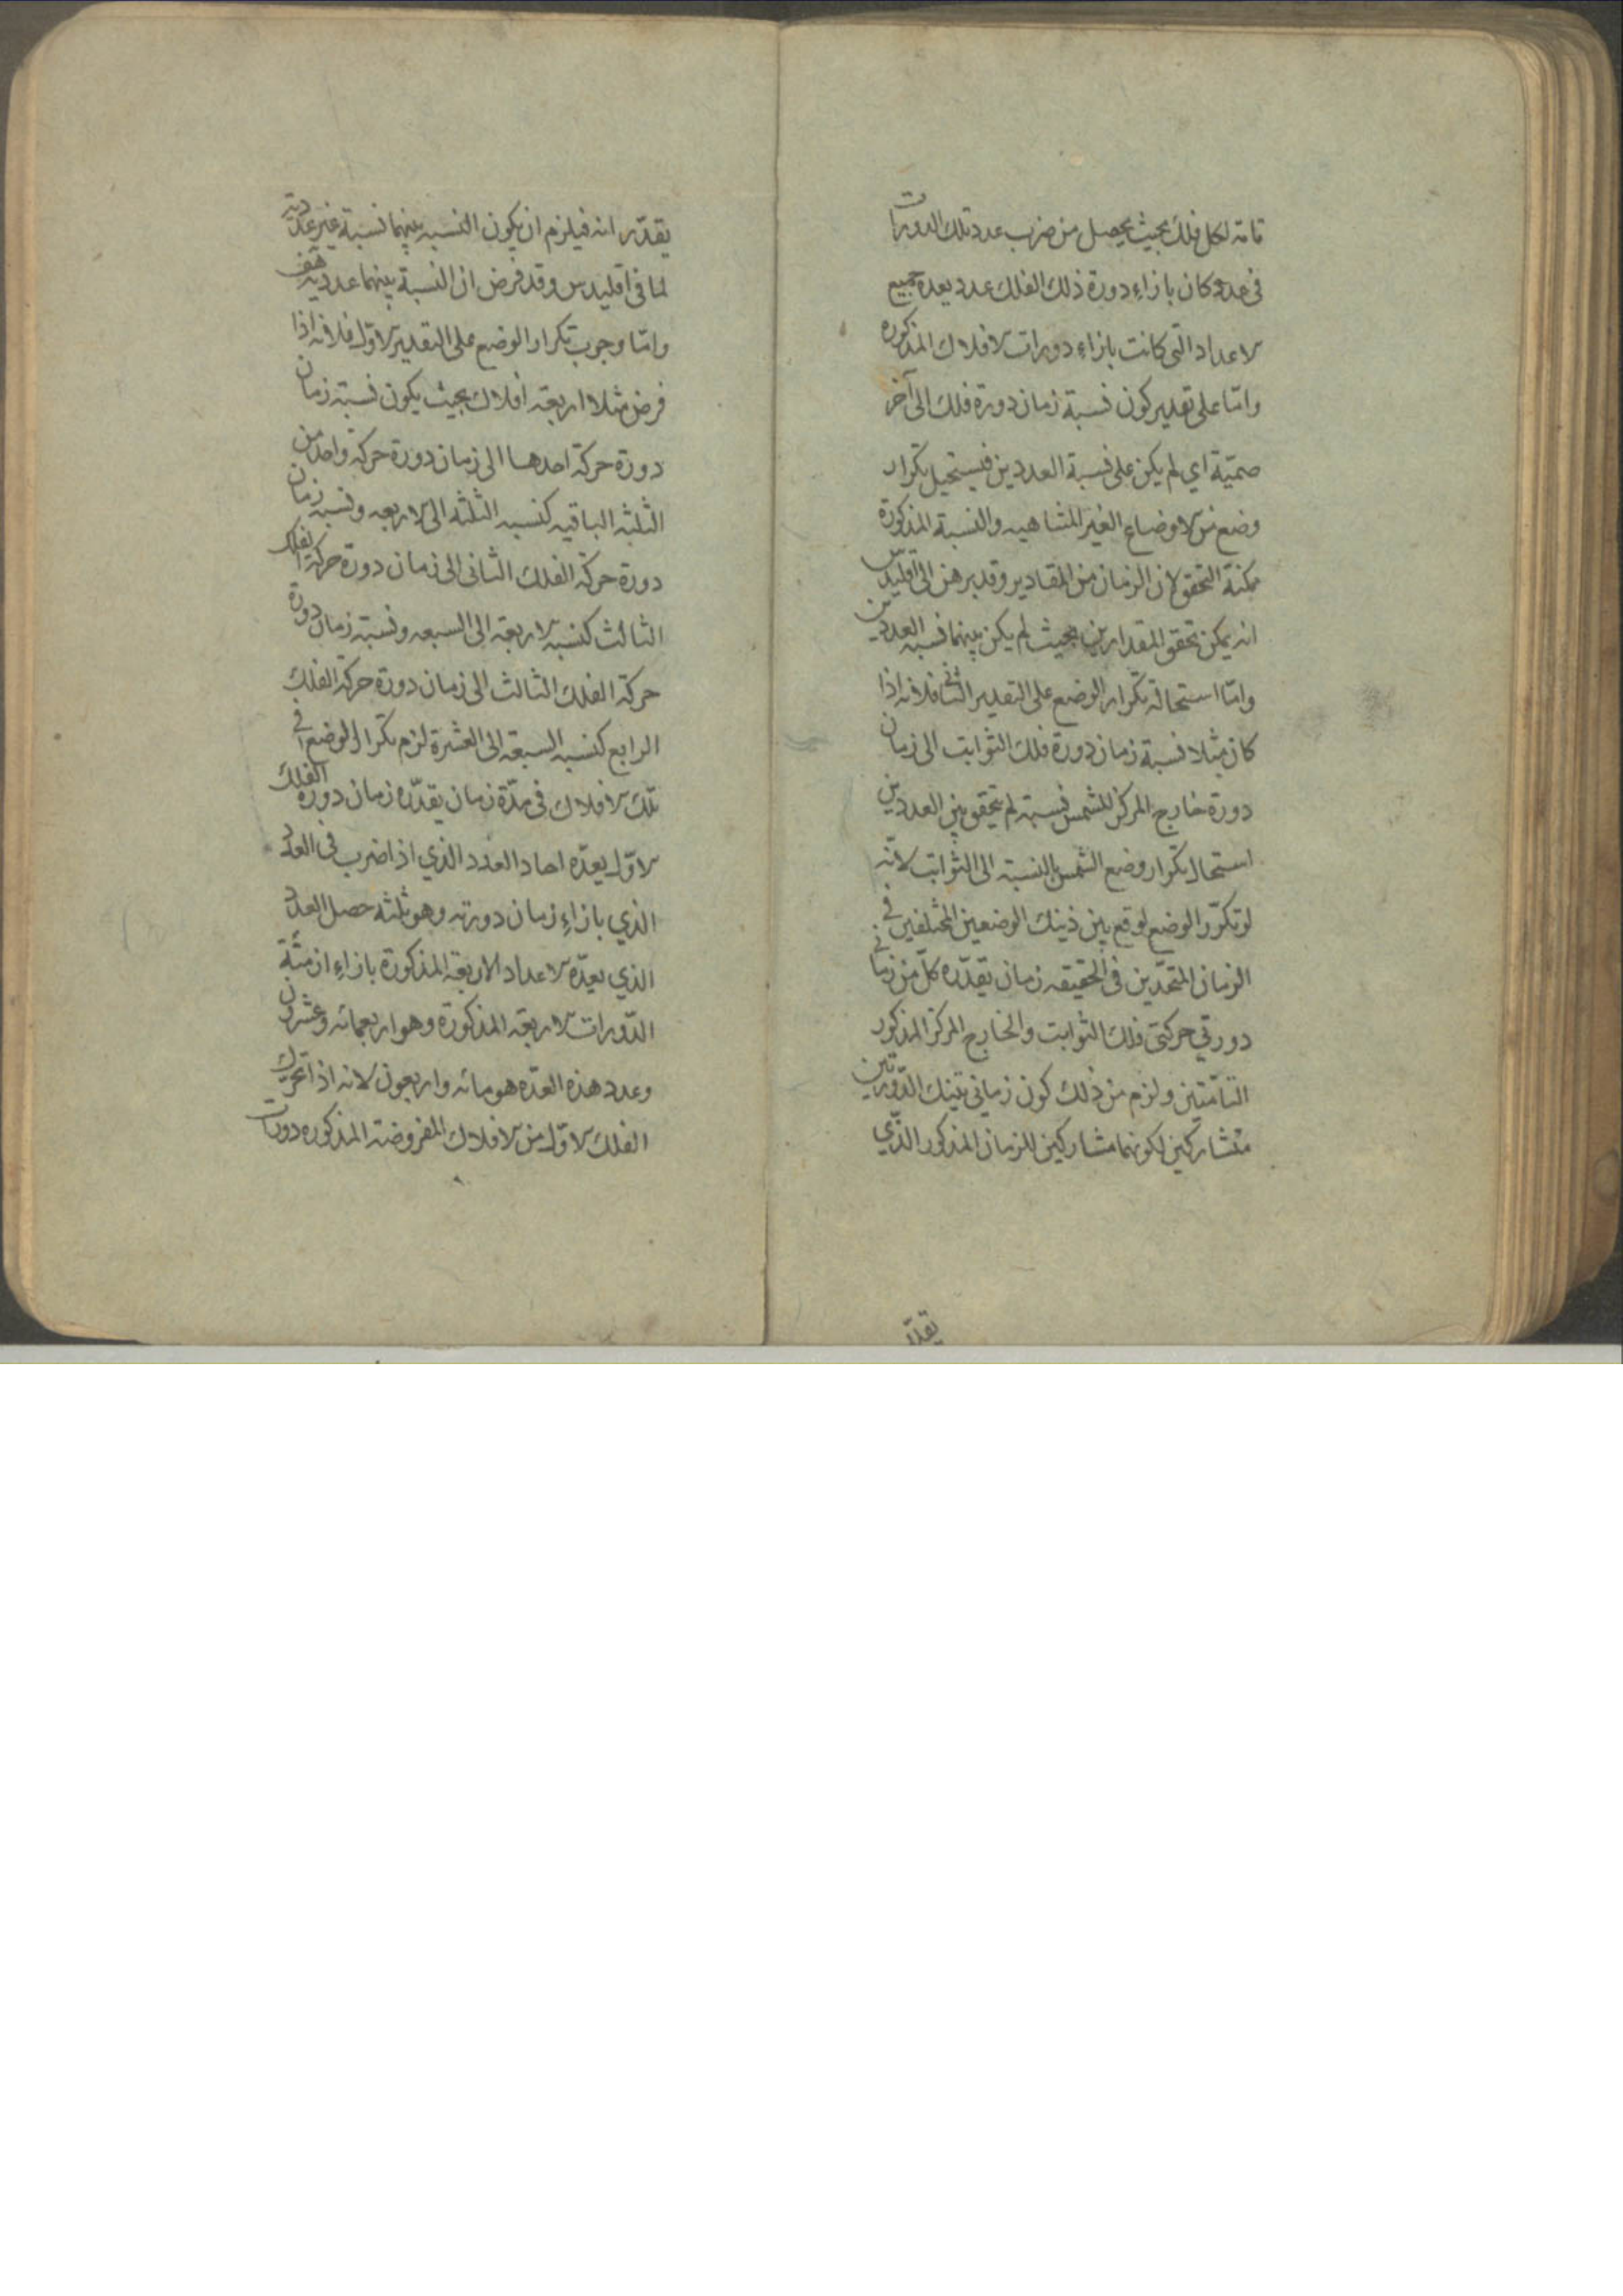 تامة لكل فلك بحيث يحصل من ضرب عدد تلك الدورات
في عدد كان بازاء دورة ذلك الفلك عدد يعده جميع
الاعداد التي كانت بازاء دورات الافلاك المذكوره
واما على تقدير كون نسبة زمان دورة فلك الى آخر
صمية اي لم يكن على نسبة العددين فيستحيل تكرار
وضع من الاوضاع الغير المتناهيه والنسبة المذكورة
ممكنة التحقق لان الزمان من المقادير وقد برهن اقليدس
انه يمكن تحقق المقدارين بحيث لم يكن بينهما نسبه العددين
واما استحالة تكرار الوضع على التقدير الثاني فلانه اذا
كان مثلا نسبة زمان دورة فلك الثوابت الى زمان
دورة خارج المركز للشمس نسبة لم يتحقق بين العددين
استحال تكرار وضع الشمس بالنسبة الى الثوابت لانه
لو تكرر الوضع لوقع بين ذينك الوضعين المختلفين في
الزمان المتحدين في الحقيقه زمان يقدره كل من زماني
دورتي حركتي فلك الثوابت والخارج المركز المذكور
التامتين ولزم من ذلك كون زماني تينك الدورتين
متشاركين لكونهما مشاركين للزمان المذكور الذي
يقدر
يقدر انه فيلزم ان يكون النسبه بينهما نسبة غير عددية
لما في اقليدس وقد فرض ان النسبة بينهما عدديه هف
واما وجوب تكرار الوضع على التقدير الاول فلانه اذا
فرض مثلا اربعة افلاك بحيث يكون نسبة زمان
دورة حركة احدها الى زمان دورة حركة واحد من
الثلثه الباقيه كنسبه الثلثه الى الاربعه ونسبه زمان
دورة حركة الفلك الثاني الى زمان دورة حركة الفلك
الثالث كنسبه الاربعة الى السبعه ونسبة زمان دورة
حركة الفلك الثالث الى زمان دورة حركة الفلك
الرابع كنسبه السبعة الى العشرة لزم تكرار الوضع في
تلك الافلاك في مدة زمان يقدره زمان دورة الفلك
الاول يعده احاد العدد الذي اذا ضرب في العدد
الذي بازاء زمان دورته وهو ثلثه حصل العدد
الذي يعده الاعداد الاربعة المذكورة بازاء ازمنة
الدورات الاربعه المذكورة وهو اربعمائه وعشرون
وعدد هذه العدة هو مائه واربعون لانه اذا تحرك
الفلك الاول من الافلاك المفروضة المذكوره دورات